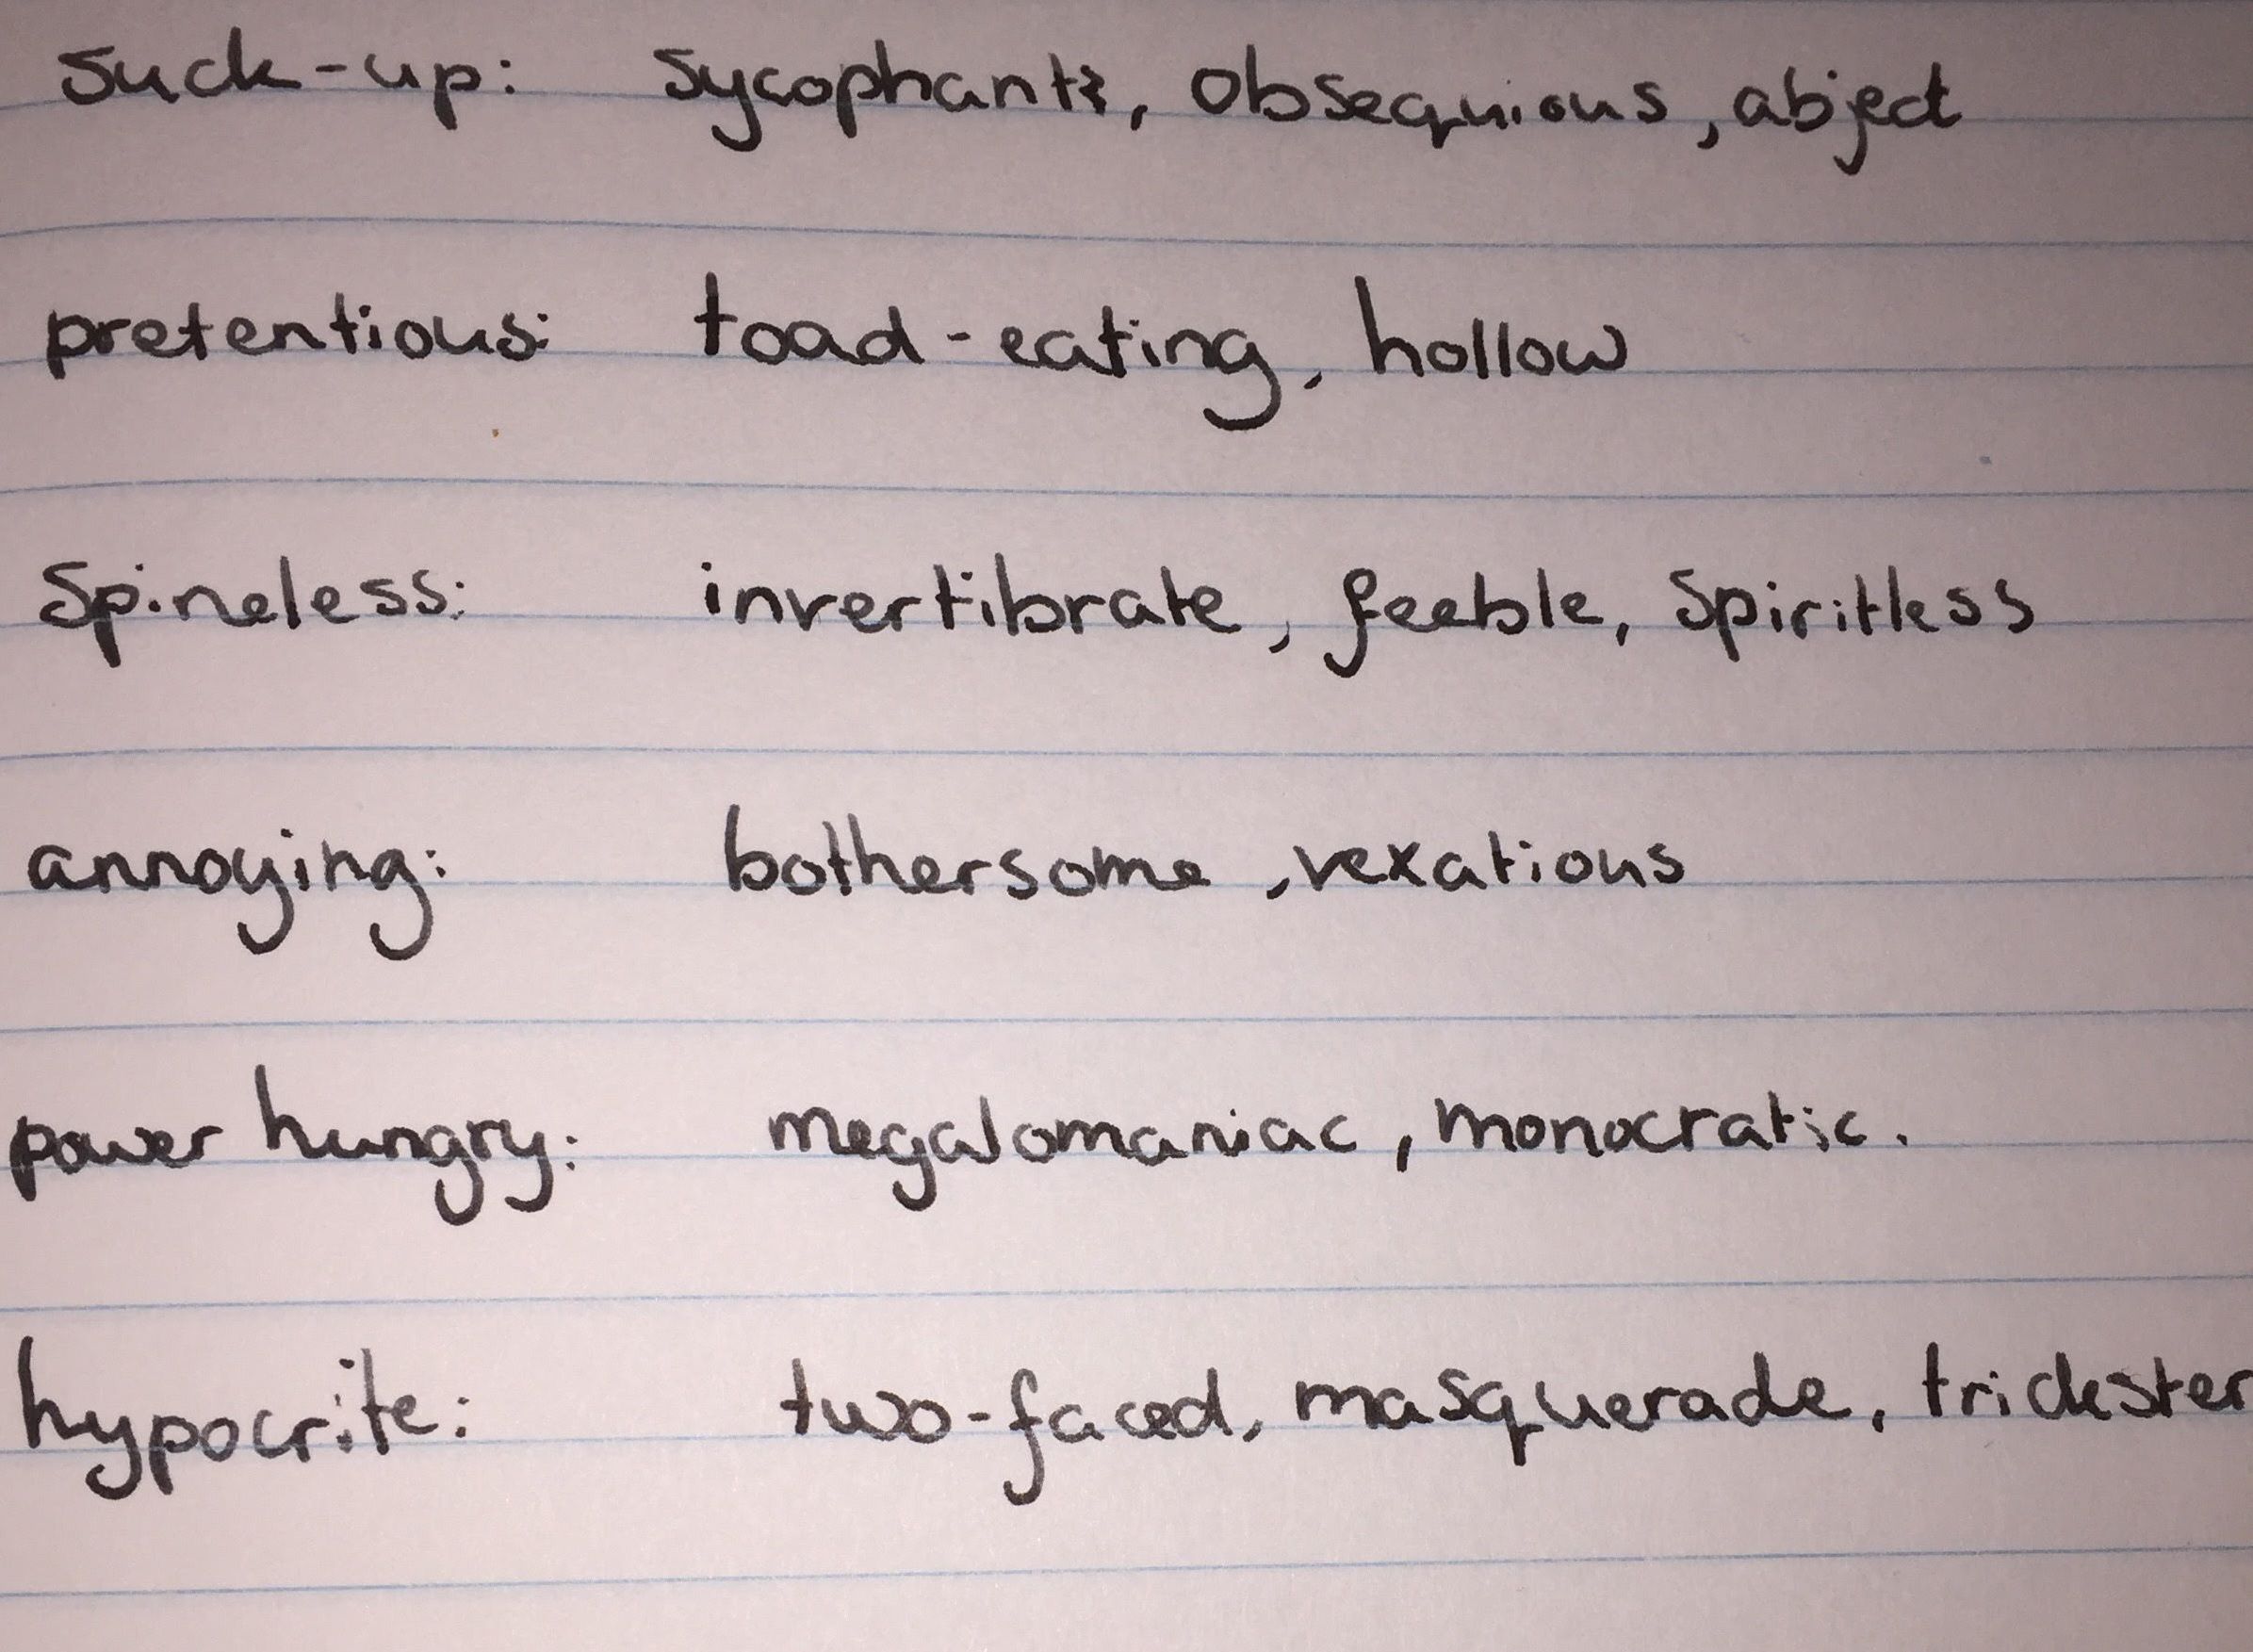 suck-up: sycophant, obsequious, abject
pretentious: toad-eating, hollow
Spineless: invertibrate, feeble, spiritless
annoying: bothersome, vexatious
power hungry: megalomaniac, monocratic.
hypocrite: two-faced, masquerade, trickster